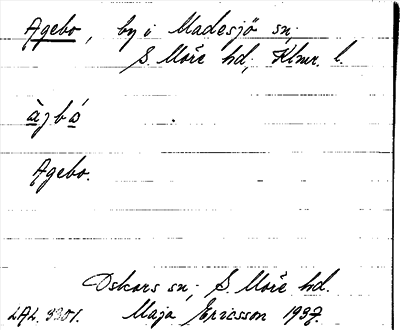 Agebo, by i Madesjö sn;
S. Möre hd; Klmr. l.
àgbó
Agebo.
Oskars sn; S. Möre hd.
LAL 3301. Maja Ericsson 1937